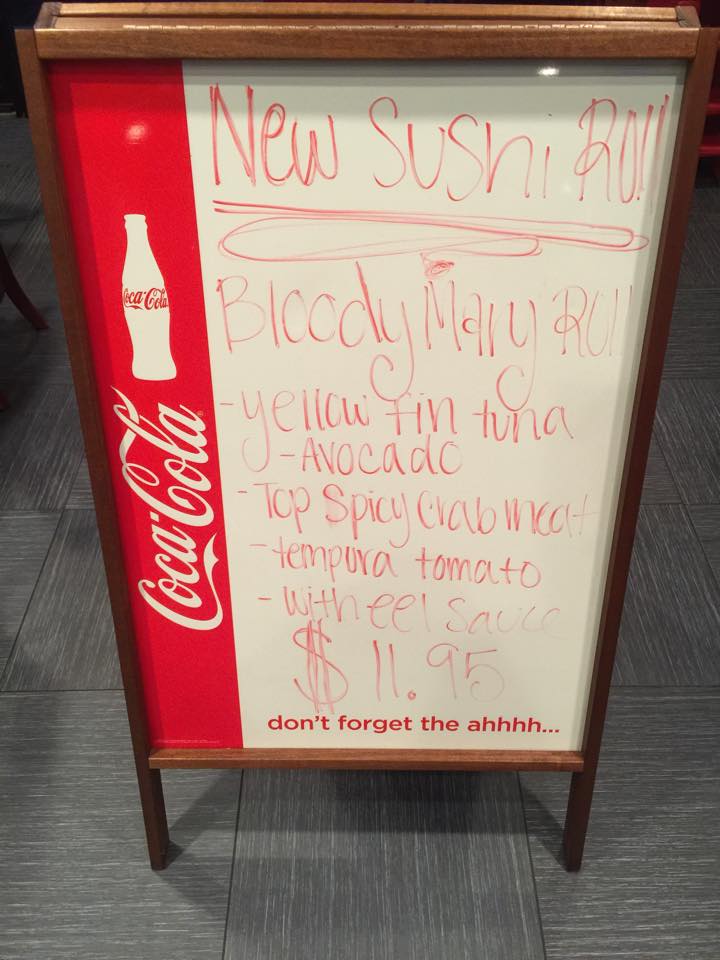 New Sushi Roll
Bloody Mary Roll
- yellow fin tuna
- Avocado
- Top Spicy Crab meat
- tempura tomato
- with eel sauce
$ 11.95
don't forget the ahhhh...
Coca-Cola
Coca-Cola